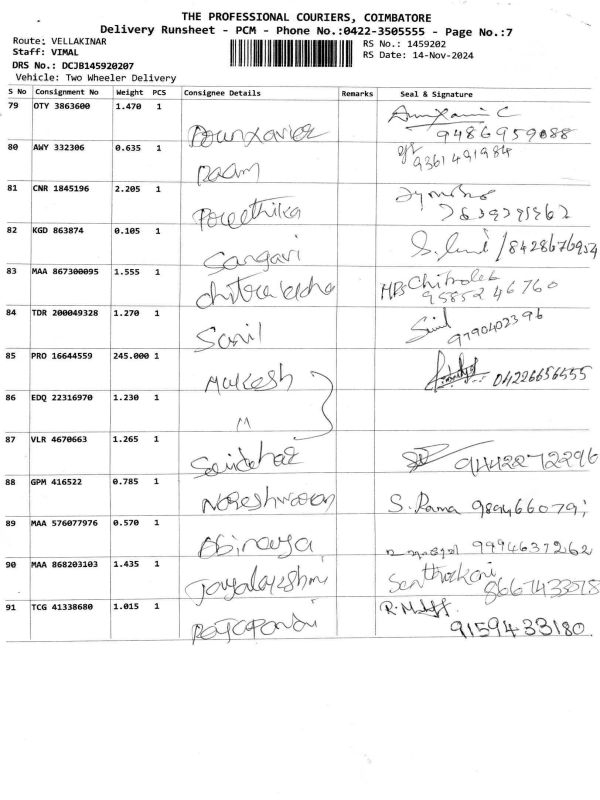 THE PROFESSIONAL COURIERS, COIMBATORE
Delivery Runsheet - PCM - Phone No.:0422-3505555 - Page No.:7
Route: VELLAKINAR
RS No.: 1459202
Staff: VIMAL
RS Date: 14-Nov-2024
DRS No.: DCJB145920207
Vehicle: Two Wheeler Delivery
S No Consignment No Weight PCS Consignee Details Remarks Seal & Signature
79 OTY 3863600 1.470 1
9486959088
80 AWY 332306 0.635 1
9361491984
81 CNR 1845196 2.205 1 Poreethika
82 KGD 863874 0.105 1 Sangavi /8428676954
83 MAA 867300095 1.555 1 Chitralekha
9585246760
84 TDR 200049328 1.270 1 Sunil 9790402396
85 PRO 16644559 245.000 1 Mukesh 04226656555
86 EDQ 22316970 1.230 1 "
87 VLR 4670663 1.265 1 9442272296
88 GPM 416522 0.785 1 Nageshwaran S. Rama
89 MAA 576077976 0.570 1 Abinaya 9994637262
90 MAA 868203103 1.435 1 Jayalakshmi
91 TCG 41338680 1.015 1 Rajapandi
9159433180